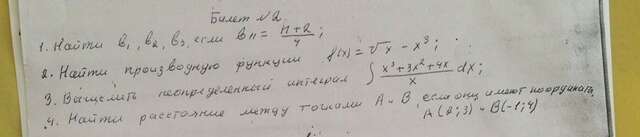 Билет №2.
1. Найти в₁, в₂, в₃, если вn = n+2/4;
2. Найти производную функции f(x) = √x - x³;
3. Вычислить неопределенный интеграл ∫ x³+3x²+4x/x dx;
4. Найти расстояние между точками А и В, если они имеют координаты
А(2;3) и В(-1;4)